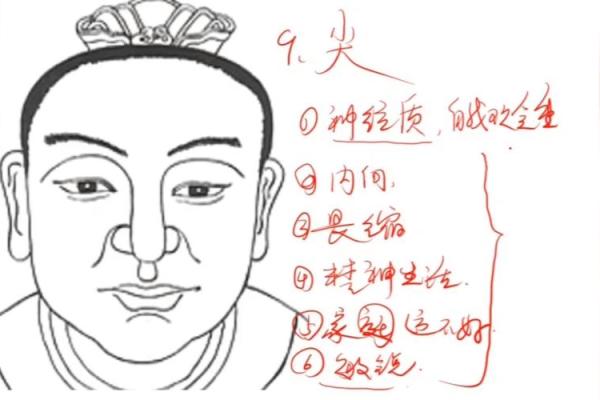 9、尖
①神经质,自我
②内向,
③畏缩
④精神生活.
⑤家运不好.
⑥敏锐.